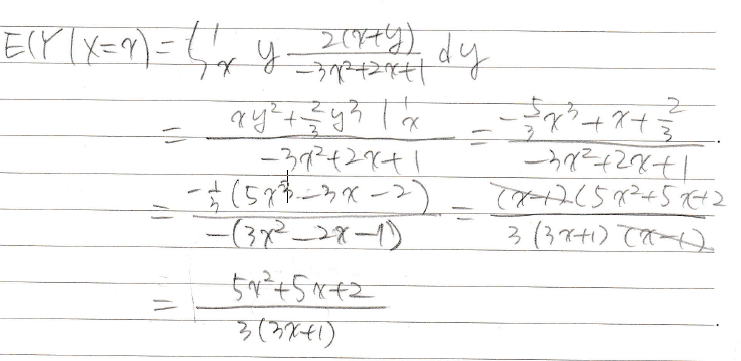 E(Y|X=x) = ∫_x^1 y \frac{2(x+y)}{-3x²+2x+1} dy
= \frac{xy²+\frac{2}{3}y³ |_x^1}{-3x²+2x+1} = \frac{-\frac{5}{3}x³+x+\frac{2}{3}}{-3x²+2x+1}.
= \frac{-\frac{1}{3}(5x³-3x-2)}{-(3x²-2x-1)} = \frac{(x-1)(5x²+5x+2}{3(3x+1)(x-1)}
= \frac{5x²+5x+2}{3(3x+1)}.